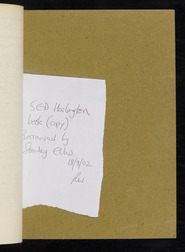 SED Harlington
book (copy)
borrowed by
Stanley Ellis
18/9/02